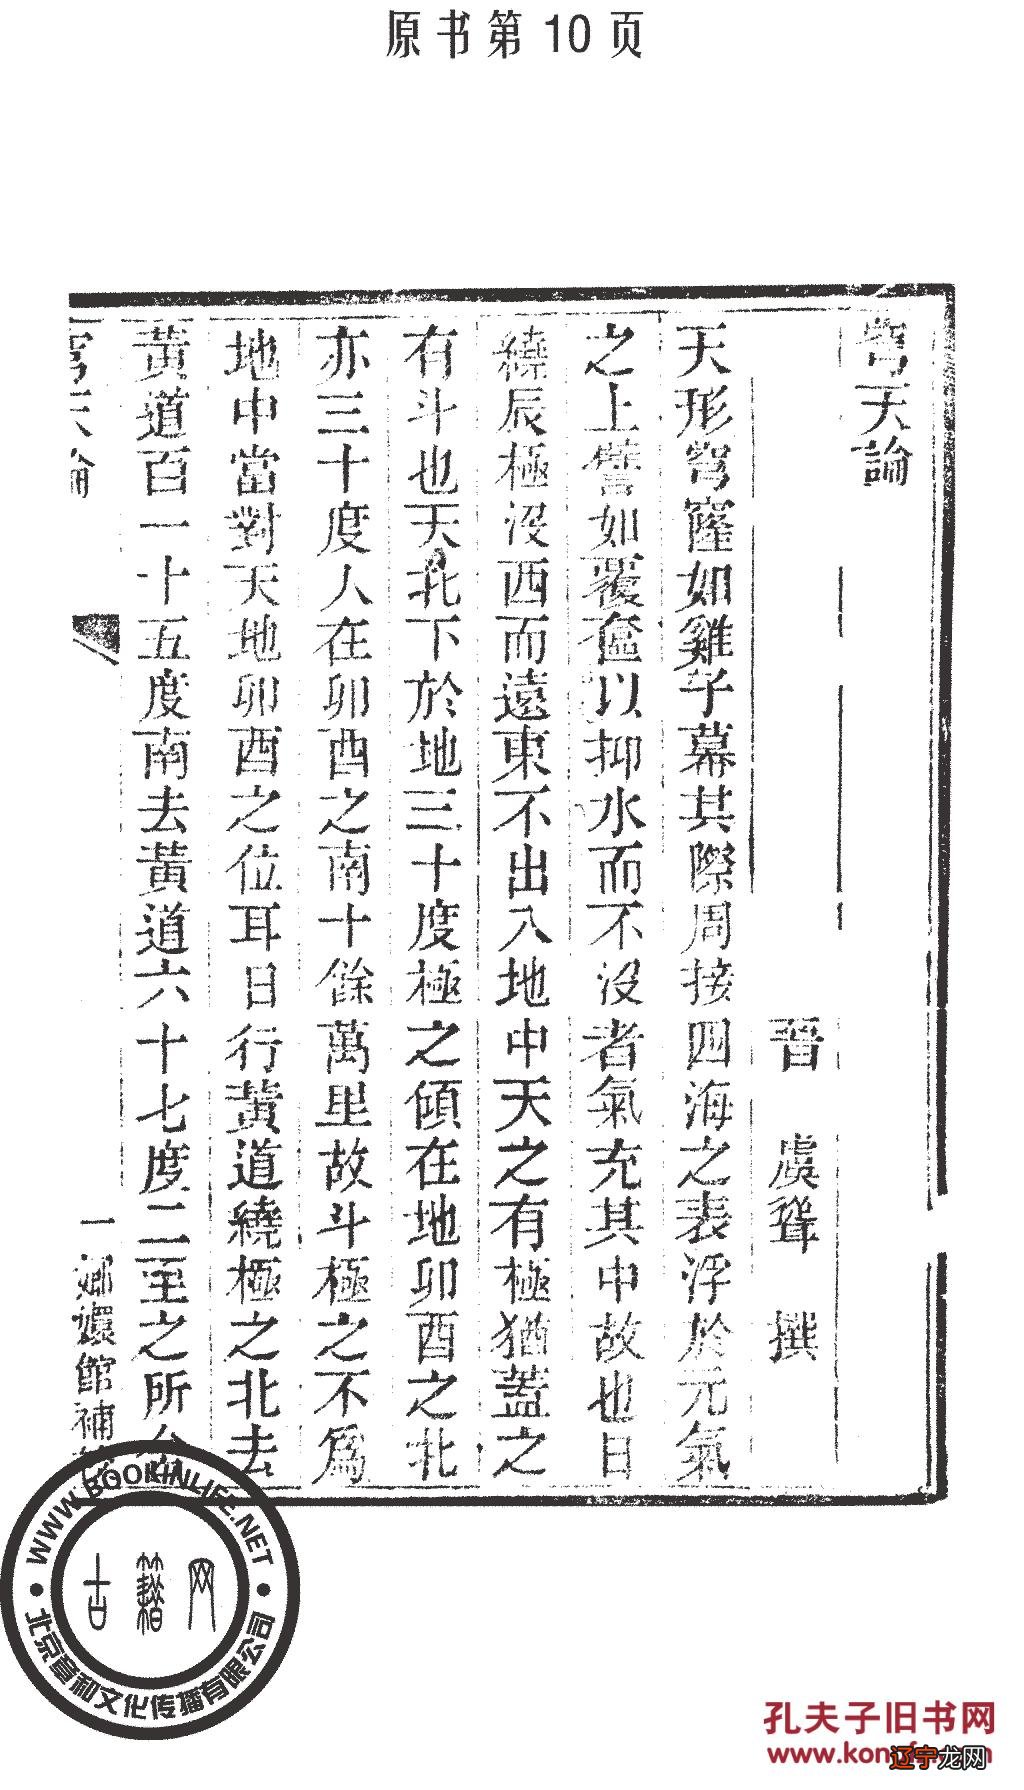 原书第 10 页
穹天論
晉 虞聳 撰
天形穹窿如雞子幕其際周接四海之表浮於元氣
之上譬如覆奩以抑水而不沒者氣充其中故也日
繞辰極沒西而遠東不出入地中天之有極猶蓋之
有斗也天北下於地三十度極之傾在地卯酉之北
亦三十度人在卯酉之南十餘萬里故斗極之不爲
地中當對天地卯酉之位耳日行黃道繞極之北去
黃道百一十五度南去黃道六十七度二至之所
穹天論
一
嫏嬛館補
WWW.BOOKINLIFE.NET
古籍网
北京章和文化传播有限公司
孔夫子旧书网
www.kon
辽宁龙网